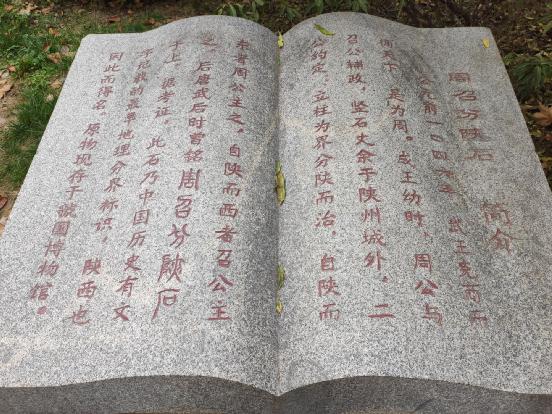 周召分陕石 简介
公元前一〇四六年 武王克商而
有天下 是为周。成王幼时，周公与
召公辅政，竖石丈余于陕州城外，二
公约定，立柱为界分陕而治，自陕而
东者周公主之，自陕而西者召公主
之，后唐武后时曾铭周召分陕石
于上，据考证，此石乃中国历史有文
字记载的最早地理分界标识，陕西也
因此而得名，原物现存于虢国博物馆。